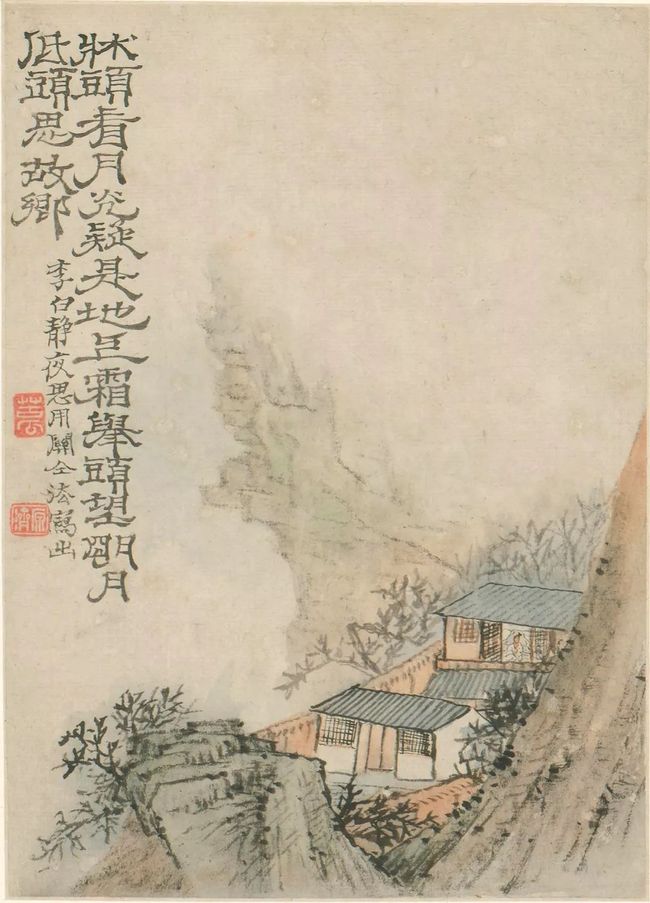 牀頭看月光疑是地上霜舉頭望明月
低頭思故鄉
李白靜夜思用關仝法寫出
苦瓜
原濟